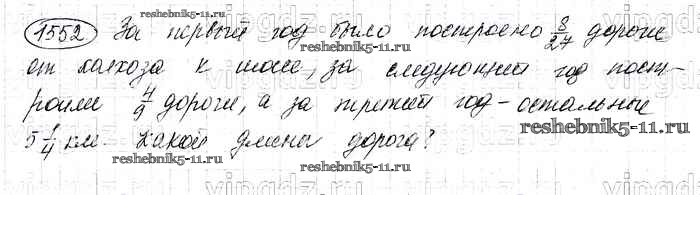 1552 За первый год было построено 8/27 дороги
от колхоза к шоссе, за следующий год пост-
роили 4/9 дороги, а за третий год - остальные
5 1/4 км. Какой длины дорога?
reshebnik5-11.ru
reshebnik5-11.ru
reshebnik5-11.ru
reshebnik5-11.ru
vipgdz.ru